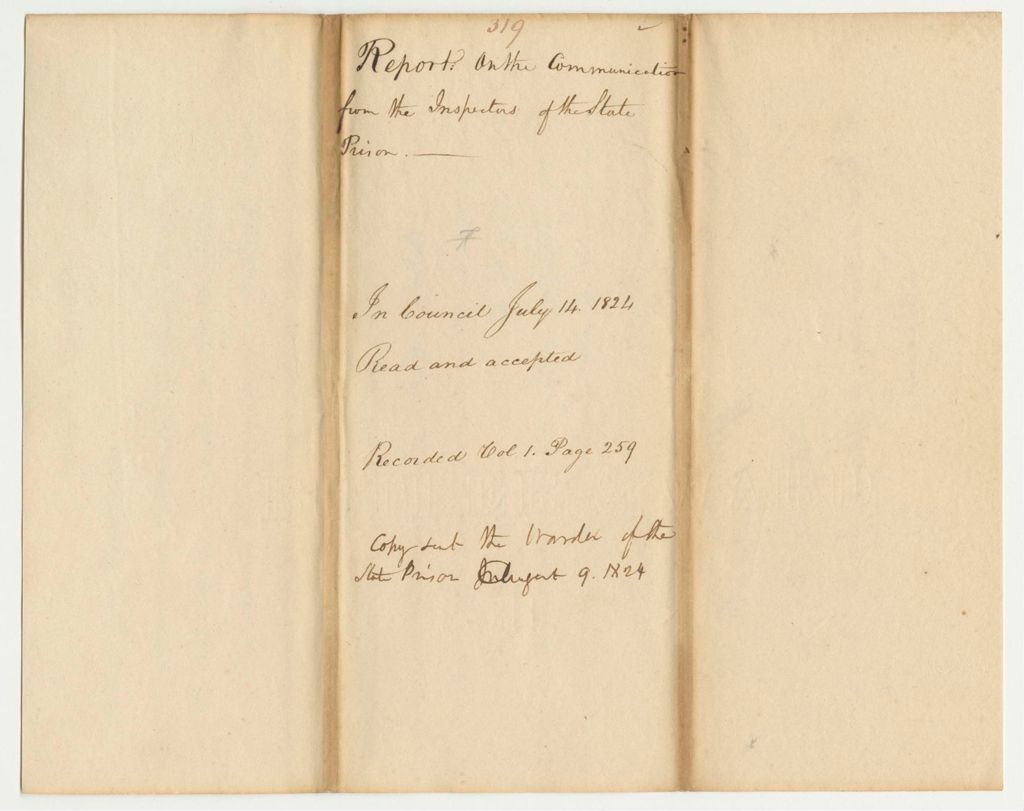 319
Report. On the Communication
from the Inspectors of the State
Prison. —
7
In Council July 14. 1824
Read and accepted
Recorded Vol 1. Page 259
Copy sent the Warden of the
State Prison August 9. 1824